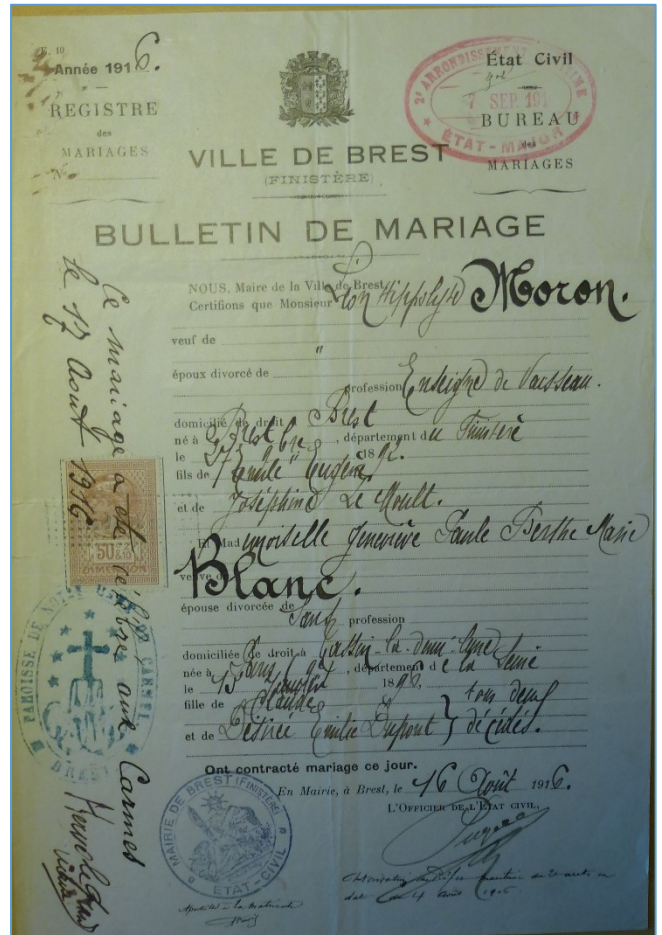 E. 10
Année 1916.
REGISTRE
des
MARIAGES
N°
VILLE DE BREST
(FINISTÈRE)
État Civil
BUREAU
des
MARIAGES
2e ARRONDISSEMENT MARITIME
7 SEP. 191
ÉTAT-MAJOR
BULLETIN DE MARIAGE
NOUS, Maire de la Ville de Brest,
Certifions que Monsieur Léon Hippolyte Moron.
veuf de
époux divorcé de "
profession Enseigne de Vaisseau.
domicilié de droit à Brest
né à Brest, département du Finistère
le 27 1892.
fils de Emile Eugène
et de Joséphine Le Moult.
Et Mademoiselle Geneviève Paule Berthe Marie
Blanc.
veuve de
épouse divorcée de
Sans profession
domiciliée de droit à
née à Paris, département de la Seine
le 15 189
fille de Claude tous deux
et de Désirée Emilie Dupont } décédés.
Ont contracté mariage ce jour.
En Mairie, à Brest, le 16 Août 1916.
L'OFFICIER DE L'ÉTAT CIVIL,
MAIRIE DE BREST (FINISTÈRE)
ÉTAT-CIVIL
Ce mariage a été célébré aux Carmes
le 17 Août 1916
50c
DIMENSION
PAROISSE DE NOTRE DAME DU CARMEL
BREST